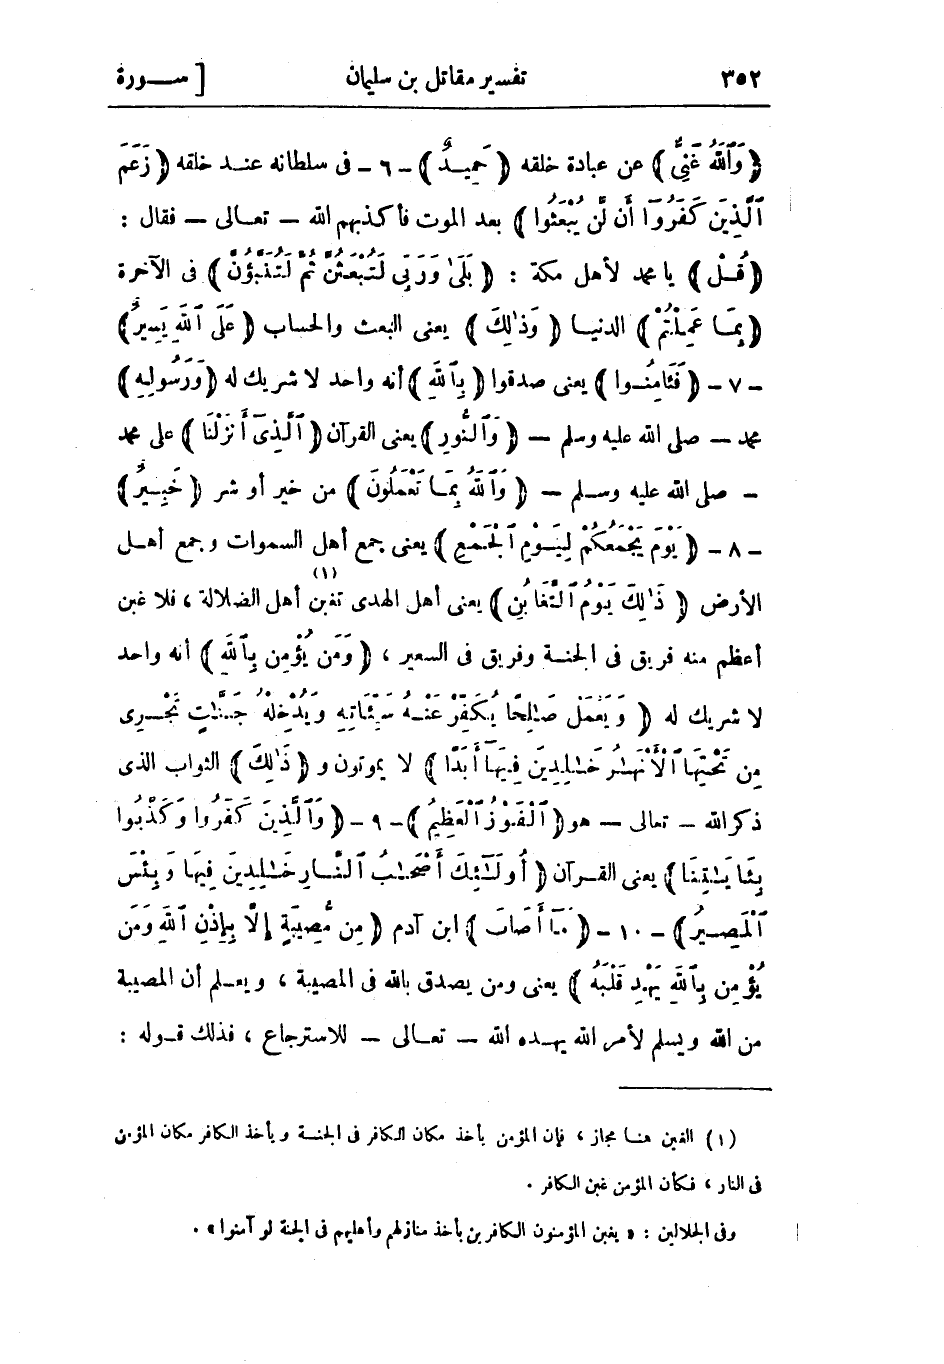 ٣٥٢ تفسير مقاتل بن سليمان [ سـورة
﴿ وَٱللَّهُ غَنِىٌّ ﴾ عن عبادة خلقه ﴿ حَمِيدٌ ﴾ - ٦ - فى سلطانه عند خلقه ﴿ زَعَمَ
ٱلَّذِينَ كَفَرُوٓا أَن لَّن يُبْعَثُوا ﴾ بعد الموت فأكذبهم الله - تعالى - فقال :
﴿ قُلْ ﴾ يا محمد لأهل مكة : ﴿ بَلَىٰ وَرَبِّى لَتُبْعَثُنَّ ثُمَّ لَتُنَبَّؤُنَّ ﴾ فى الآخرة
﴿ بِمَا عَمِلْتُمْ ﴾ الدنيا ﴿ وَذَٰلِكَ ﴾ يعنى البعث والحساب ﴿ عَلَى ٱللَّهِ يَسِيرٌ ﴾
- ٧ - ﴿ فَـَٔامِنُوا ﴾ يعنى صدقوا ﴿ بِٱللَّهِ ﴾ أنه واحد لا شريك له ﴿ وَرَسُولِهِ ﴾
محمد - صلى الله عليه وسلم - ﴿ وَٱلنُّورِ ﴾ يعنى القرآن ﴿ ٱلَّذِىٓ أَنزَلْنَا ﴾ على محمد
- صلى الله عليه وسلم - ﴿ وَٱللَّهُ بِمَا تَعْمَلُونَ ﴾ من خير أو شر ﴿ خَبِيرٌ ﴾
- ٨ - ﴿ يَوْمَ يَجْمَعُكُمْ لِيَوْمِ ٱلْجَمْعِ ﴾ يعنى جمع أهل السموات وجمع أهل
الأرض ﴿ ذَٰلِكَ يَوْمُ ٱلتَّغَابُنِ ﴾ يعنى أهل الهدى تغبن (١) أهل الضلالة ، فلا غبن
أعظم منه فريق فى الجنة وفريق فى السعير ، ﴿ وَمَن يُؤْمِن بِٱللَّهِ ﴾ أنه واحد
لا شريك له ﴿ وَيَعْمَلْ صَـٰلِحًا يُكَفِّرْ عَنْهُ سَيِّئَاتِهِ وَيُدْخِلْهُ جَنَّـٰتٍ تَجْرِى
مِن تَحْتِهَا ٱلْأَنْهَـٰرُ خَـٰلِدِينَ فِيهَآ أَبَدًا ﴾ لا يموتون و ﴿ ذَٰلِكَ ﴾ الثواب الذى
ذكر الله - تعالى - هو ﴿ ٱلْفَوْزُ ٱلْعَظِيمُ ﴾ - ٩ - ﴿ وَٱلَّذِينَ كَفَرُوا وَكَذَّبُوا
بِـَٔايَـٰتِنَا ﴾ يعنى القرآن ﴿ أُولَـٰٓئِكَ أَصْحَـٰبُ ٱلنَّارِ خَـٰلِدِينَ فِيهَا وَبِئْسَ
ٱلْمَصِيرُ ﴾ - ١٠ - ﴿ مَآ أَصَابَ ﴾ ابن آدم ﴿ مِن مُّصِيبَةٍ إِلَّا بِإِذْنِ ٱللَّهِ وَمَن
يُؤْمِن بِٱللَّهِ يَهْدِ قَلْبَهُ ﴾ يعنى ومن يصدق بالله فى المصيبة ، ويعلم أن المصيبة
من الله ويسلم لأمر الله يهده الله - تعالى - للاسترجاع ، فذلك قوله :
(١) الغبن هنا مجاز ، فإن المؤمن يأخذ مكان الكافر فى الجنة ويأخذ الكافر مكان المؤمن
فى النار ، فكأن المؤمن غبن الكافر .
وفى الجلالين : « يغبن المؤمنون الكافرين بأخذ منازلهم وأهليهم فى الجنة لو آمنوا » .